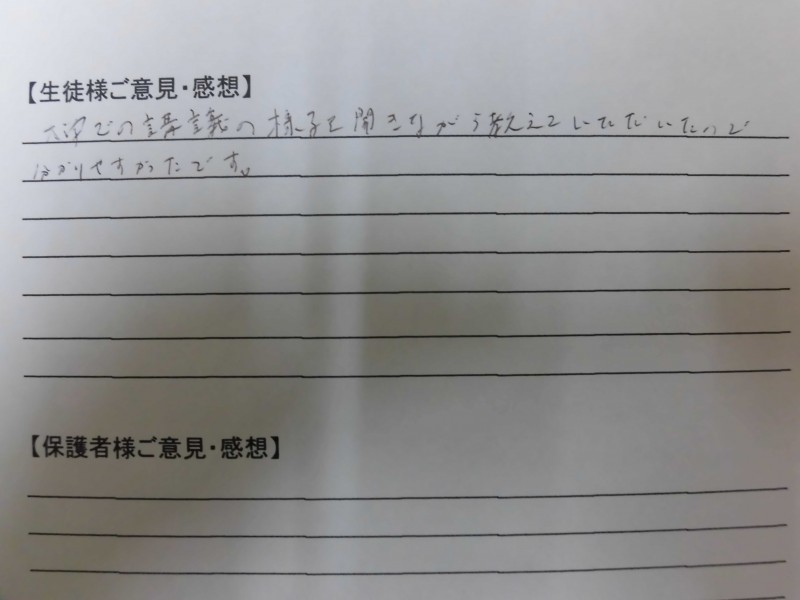 【生徒様ご意見・感想】
での講義の様子を聞きながら教えていただいたので
分かりやすかったです。
【保護者様ご意見・感想】